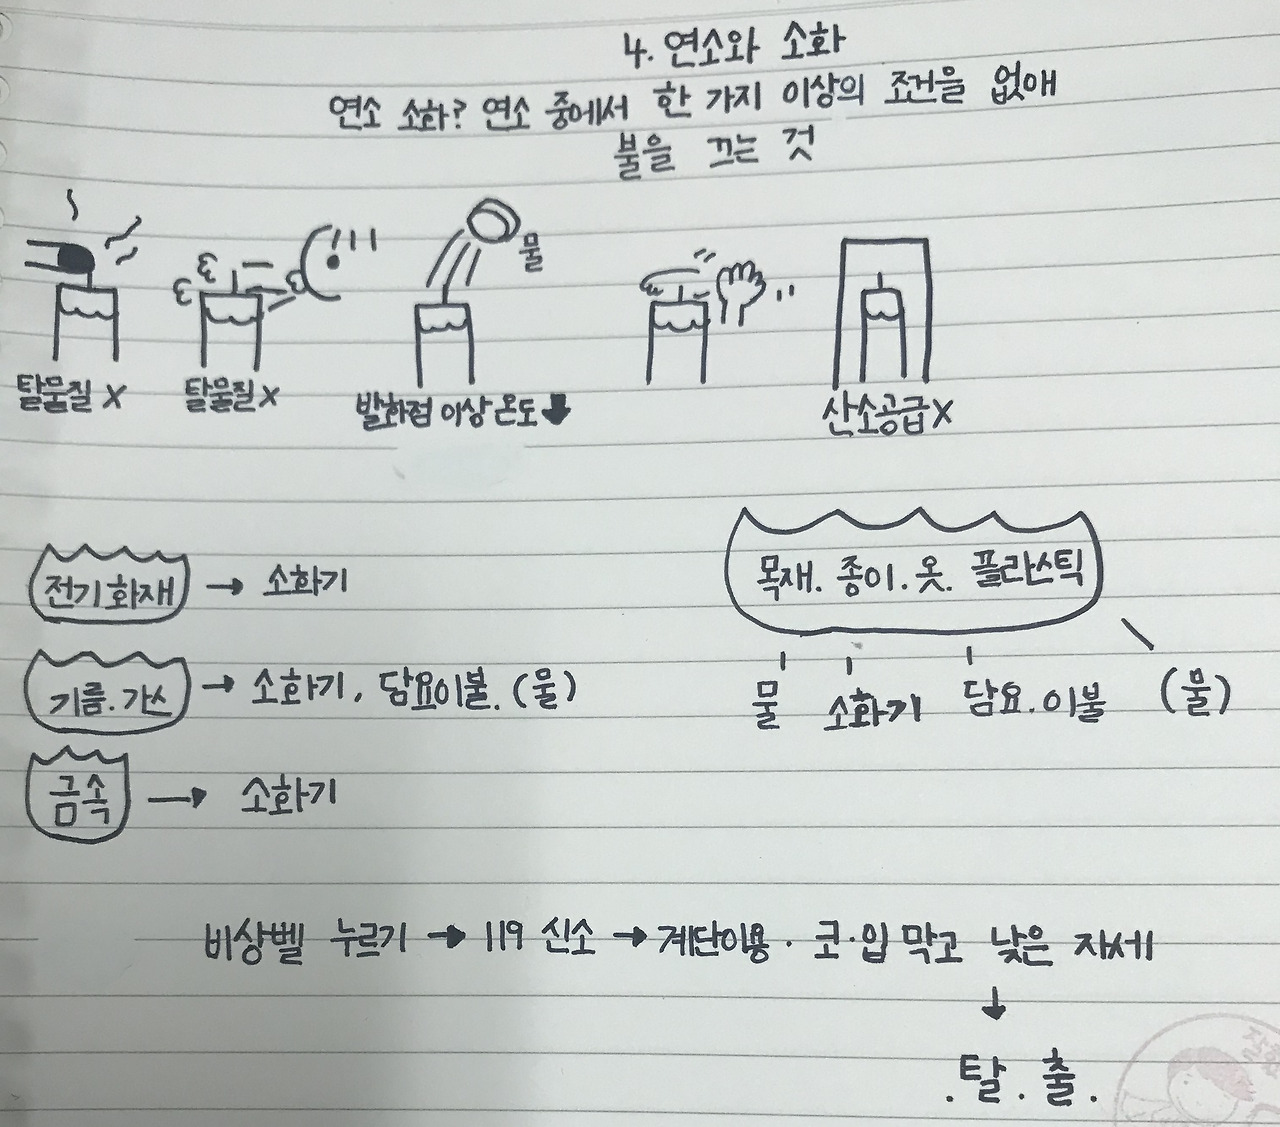 4. 연소와 소화
연소 소화? 연소 중에서 한 가지 이상의 조건을 없애
불을 끄는 것
물
탈물질 X
탈물질 X
발화점 이상 온도⬇
산소공급X
전기화재 → 소화기
기름.가스 → 소화기, 담요이불. (물)
금속 → 소화기
목재. 종이. 옷. 플라스틱
물 소화기 담요.이불 (물)
비상벨 누르기 → 119 신소 → 계단이용. 코·입 막고 낮은 자세
↓
.탈.출.